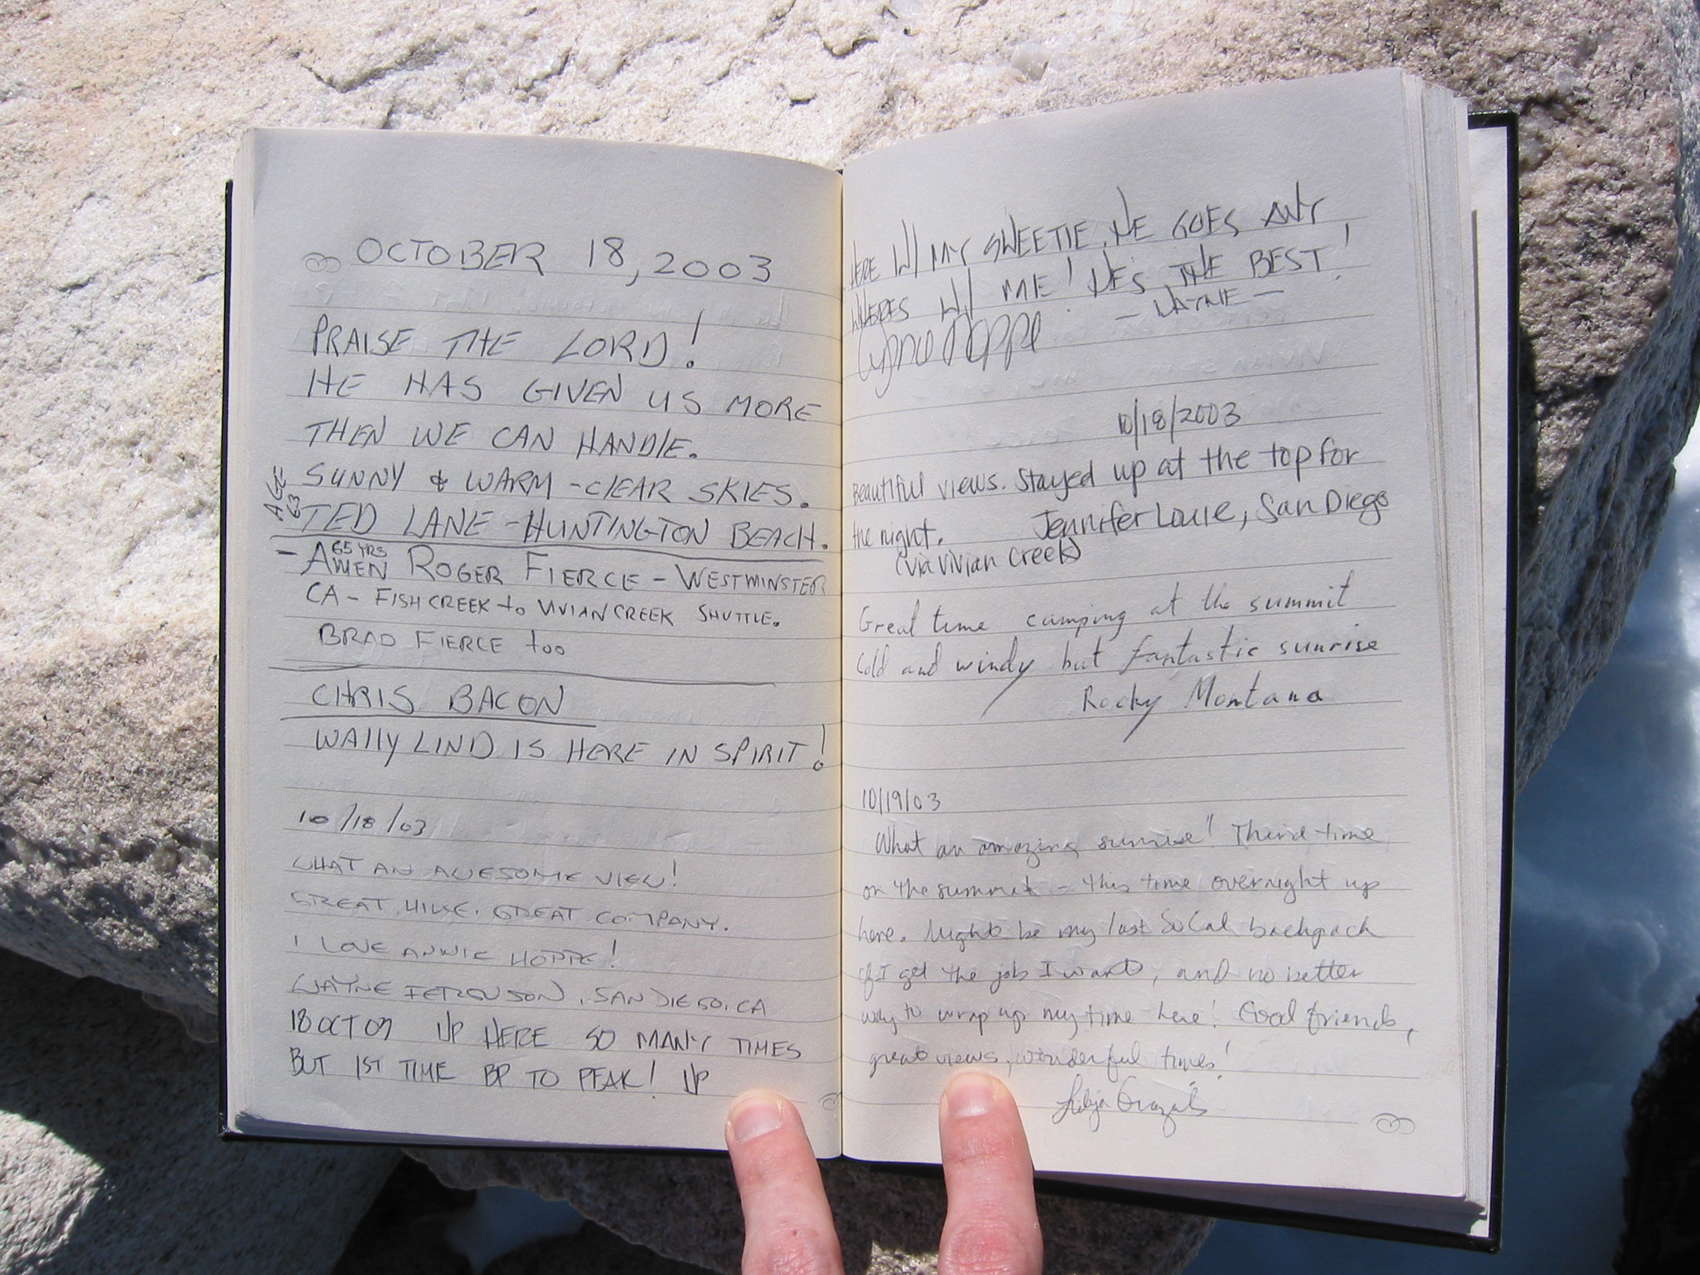 OCTOBER 18, 2003
PRAISE THE LORD!
HE HAS GIVEN US MORE
THEN WE CAN HANDLE.
SUNNY & WARM - CLEAR SKIES.
AGE 63
TED LANE - HUNTINGTON BEACH.
65 YRS
- AMEN ROGER FIERCE - WESTMINSTER
CA - FISH CREEK to VIVIAN CREEK SHUTTLE.
BRAD FIERCE too
CHRIS BACON
WALLY LIND IS HERE IN SPIRIT!
10/18/03
WHAT AN AWESOME VIEW!
GREAT HIKE. GREAT COMPANY.
I LOVE ANNIE HOPPE!
WAYNE FERGUSON, SAN DIEGO, CA
18 OCT 03 UP HERE SO MANY TIMES
BUT 1ST TIME BP TO PEAK! UP
HERE W/ MY SWEETIE, HE GOES ANY
WHERES W/ ME! HE'S THE BEST!
- WAYNE -
Hoppe
10/18/2003
Beautiful views. Stayed up at the top for
the night. Jennifer Louie, San Diego
(via Vivian Creek)
Great time camping at the summit
Cold and windy but fantastic sunrise
Rocky Montana
10/19/03
What an amazing sunrise! Third time
on the summit - this time overnight up
here. Might be my last SoCal backpack
if I get the job I want, and no better
way to wrap up my time here! Good friends,
great views, wonderful times!